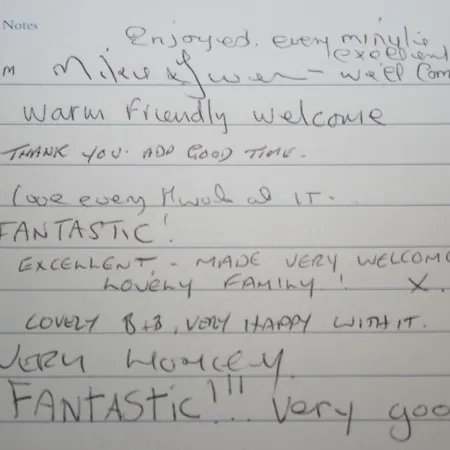 Notes
Enjoyed every minute
excellent
m Mike & Gwen - we'll com
Warm Friendly welcome
THANK YOU. ADD GOOD TIME.
love every IT..
FANTASTIC!
EXCELLENT, - MADE VERY WELCOME
LOVELY FAMILY! X.
LOVELY B+B, VERY HAPPY WITH IT.
VERY HOMELY.
FANTASTIC!!!... Very goo